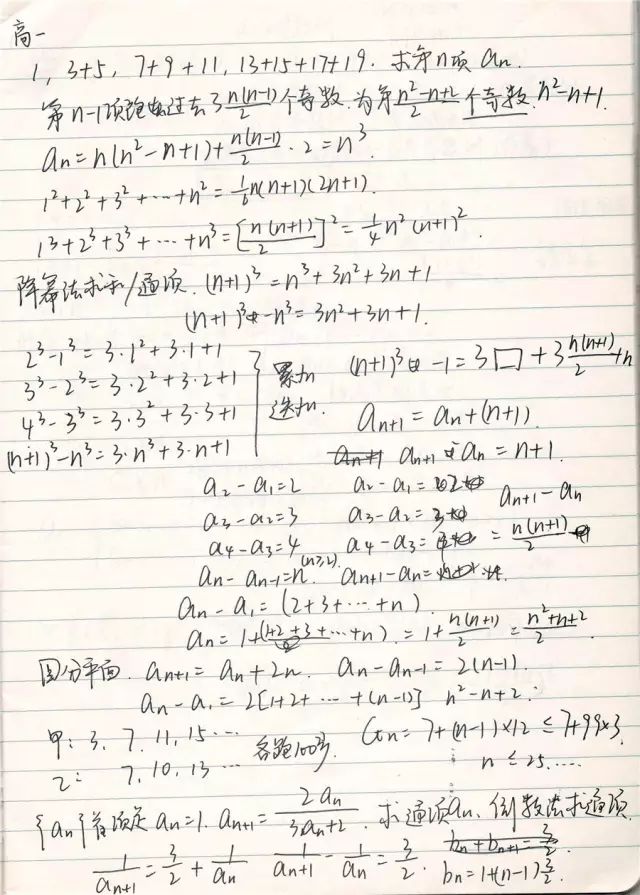 高一
1, 3+5, 7+9+11, 13+15+17+19. 求第n项 an.
第n-1项 过去 n(n-1)/2 个奇数. 为第 (n²-n+2)/2 个奇数. n²-n+1.
an = n(n²-n+1) + n(n-1)/2 · 2 = n³
1²+2²+3²+ ··· +n² = 1/6 n(n+1)(2n+1).
1³+2³+3³+ ··· +n³ = [n(n+1)/2]² = 1/4 n²(n+1)².
降幂法求和/通项. (n+1)³ = n³+3n²+3n+1
(n+1)³-n³ = 3n²+3n+1.
2³-1³ = 3·1²+3·1+1
3³-2³ = 3·2²+3·2+1
4³-3³ = 3·3²+3·3+1
(n+1)³-n³ = 3·n³+3·n+1
累加
迭加.
(n+1)³ -1 = 3□ + 3 n(n+1)/2 + n
an+1 = an+(n+1).
an+1 - an = n+1.
a2-a1=2 a2-a1= an+1-an
a3-a2=3 a3-a2= = n(n+1)/2
a4-a3=4 a4-a3=
an-an-1=n (n≥2). an+1-an=
an-a1=(2+3+ ··· +n).
an=1+(1+2+3+ ··· +n). =1+ n(n+1)/2 = (n²+n+2)/2
圆分平面. an+1=an+2n. an-an-1=2(n-1).
an-a1=2[1+2+ ··· +(n-1)] n²-n+2.
甲: 3, 7, 11, 15 ··· 各跑100号. an=7+(n-1)×12 ≤ 7+99×3
乙: 7, 10, 13 ··· n≤25.....
{an} 首项是 an=1. an+1= 2an/(3an+2). 求通项an. 倒数法求通项.
bn+bn+1=3/2
1/an+1 = 3/2 + 1/an 1/an+1 - 1/an = 3/2. bn=1+(n-1)3/2.